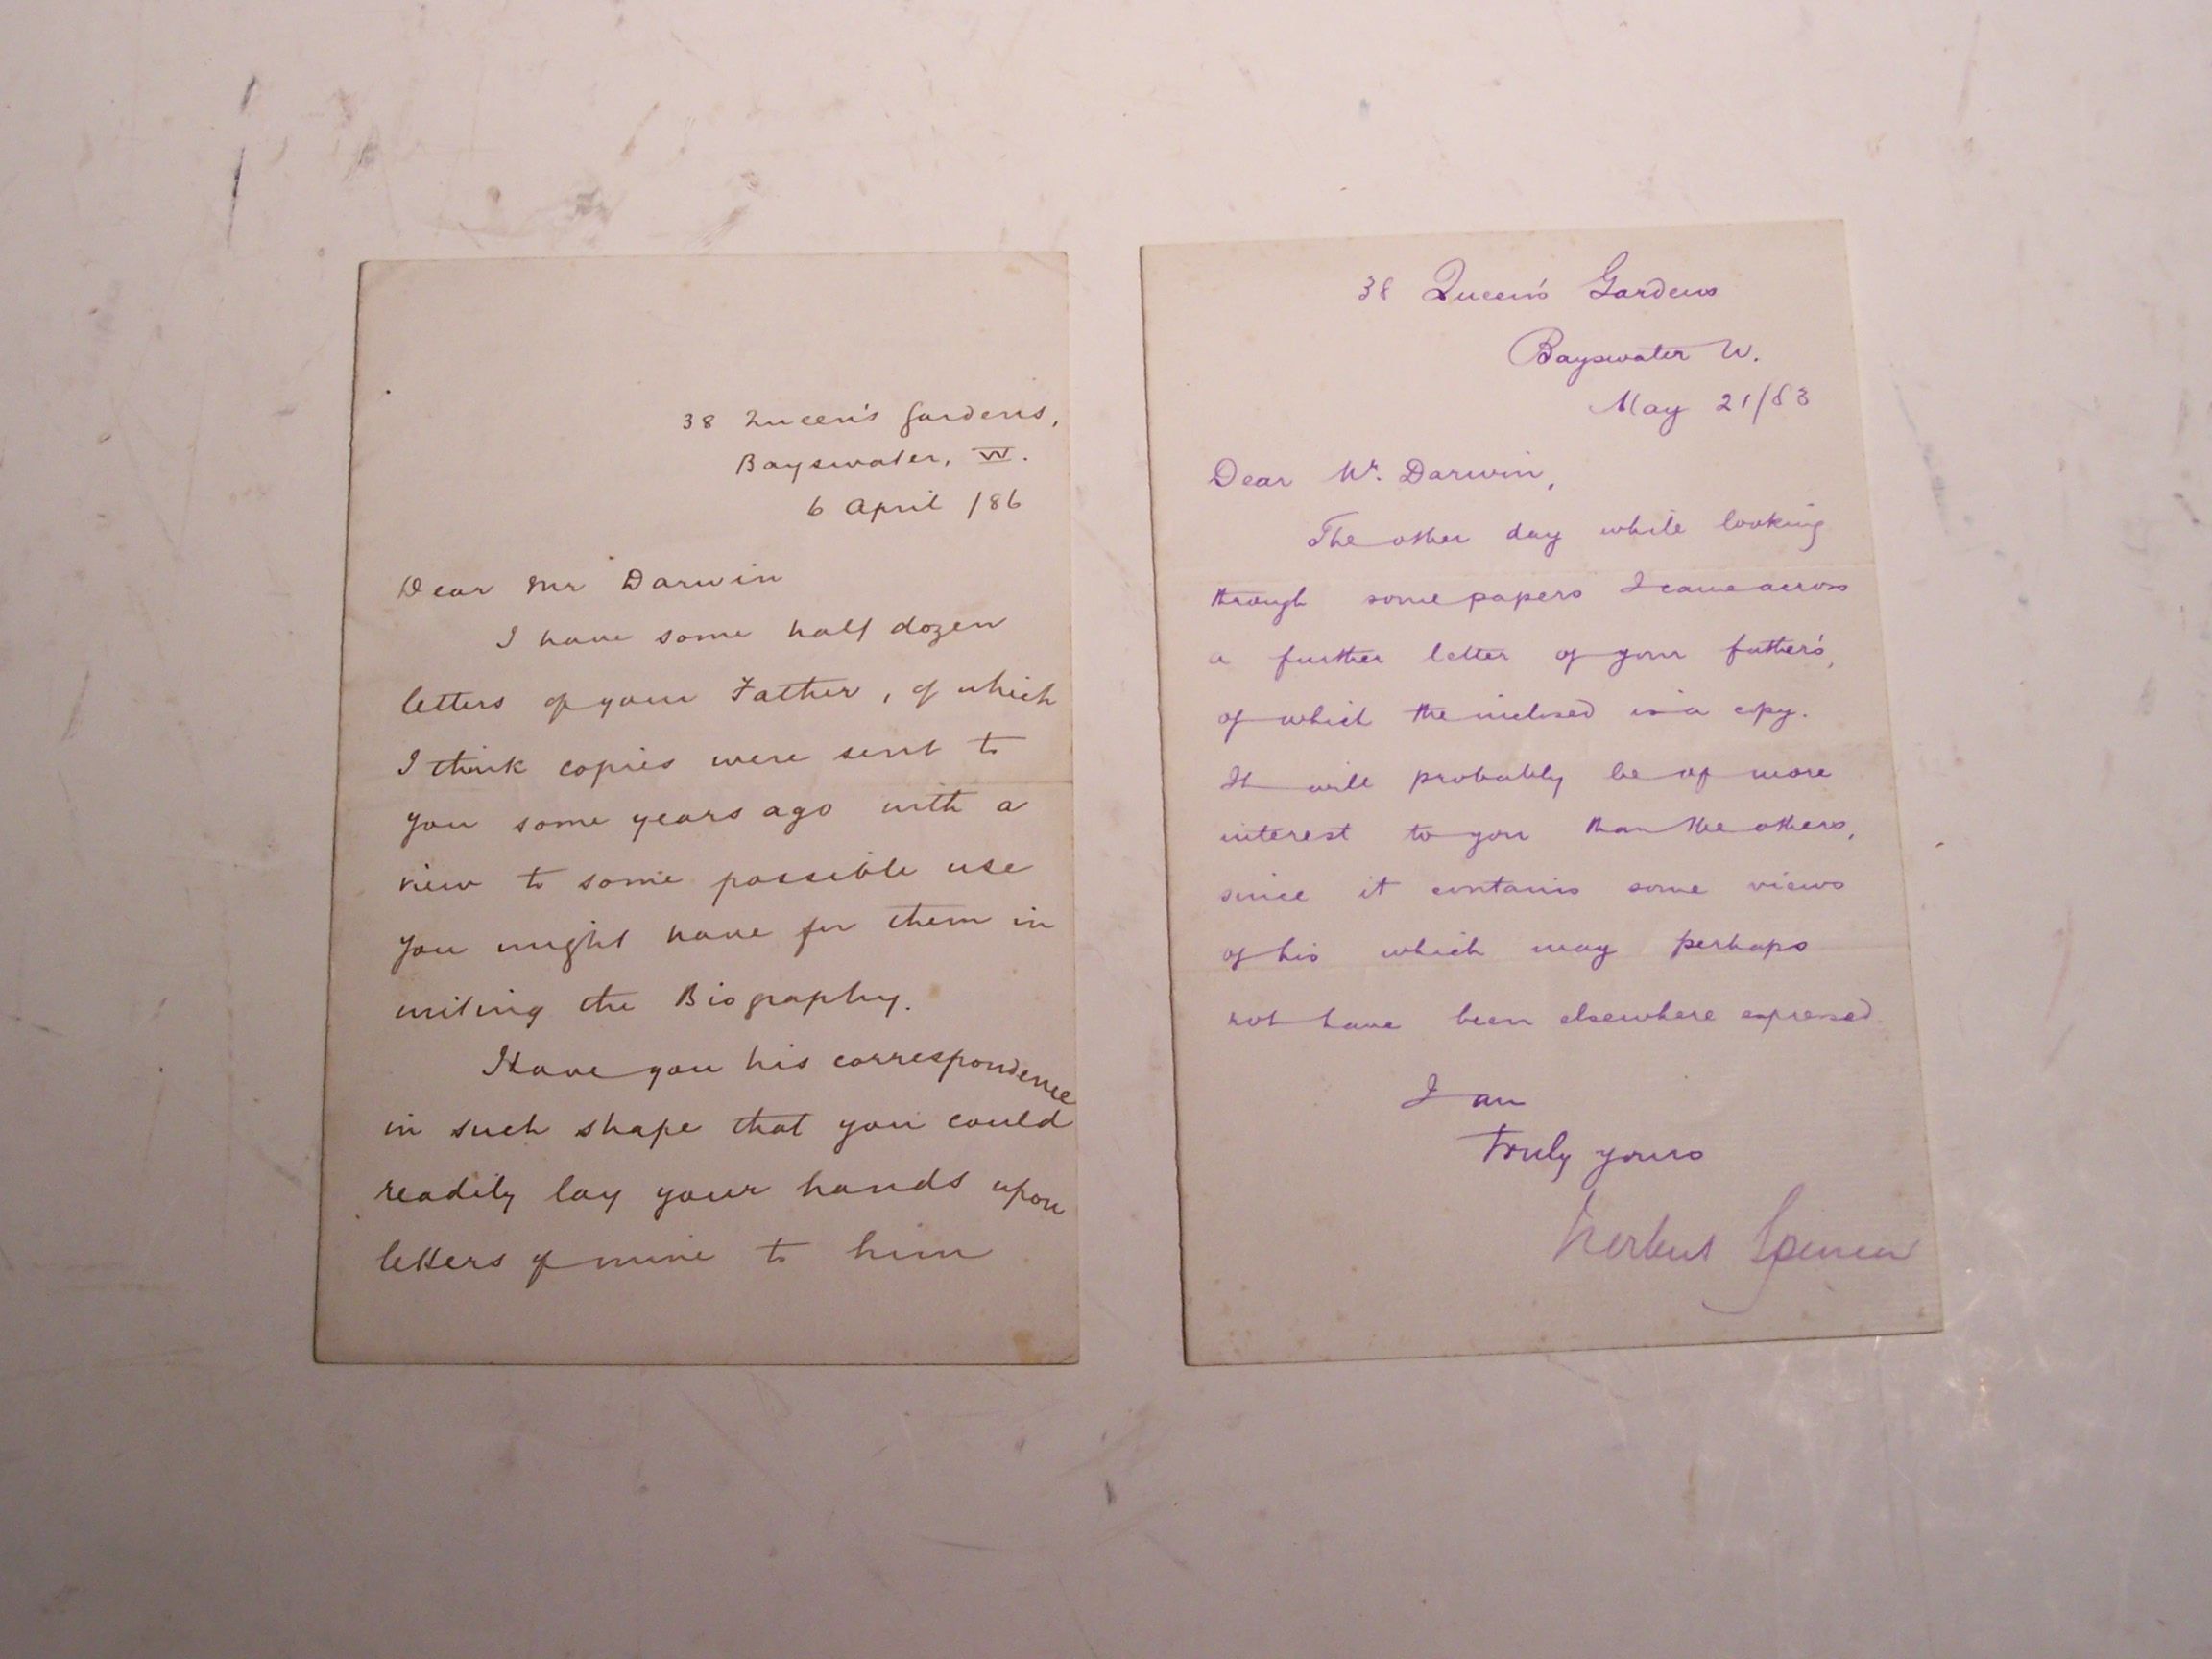 38 Queen's Gardens,
Bayswater, W.
6 April /86
Dear Mr Darwin
I have some half dozen
letters of your Father, of which
I think copies were sent to
you some years ago with a
view to some possible use
you might have for them in
writing the Biography.
Have you his correspondence
in such shape that you could
readily lay your hands upon
letters of mine to him
38 Queen's Gardens
Bayswater W.
May 21/83
Dear Mr. Darwin,
The other day while looking
through some papers I came across
a further letter of your father's,
of which the inclosed is a copy.
It will probably be of more
interest to you than the others,
since it contains some views
of his which may perhaps
not have been elsewhere expressed.
I am
Truly yours
Herbert Spencer